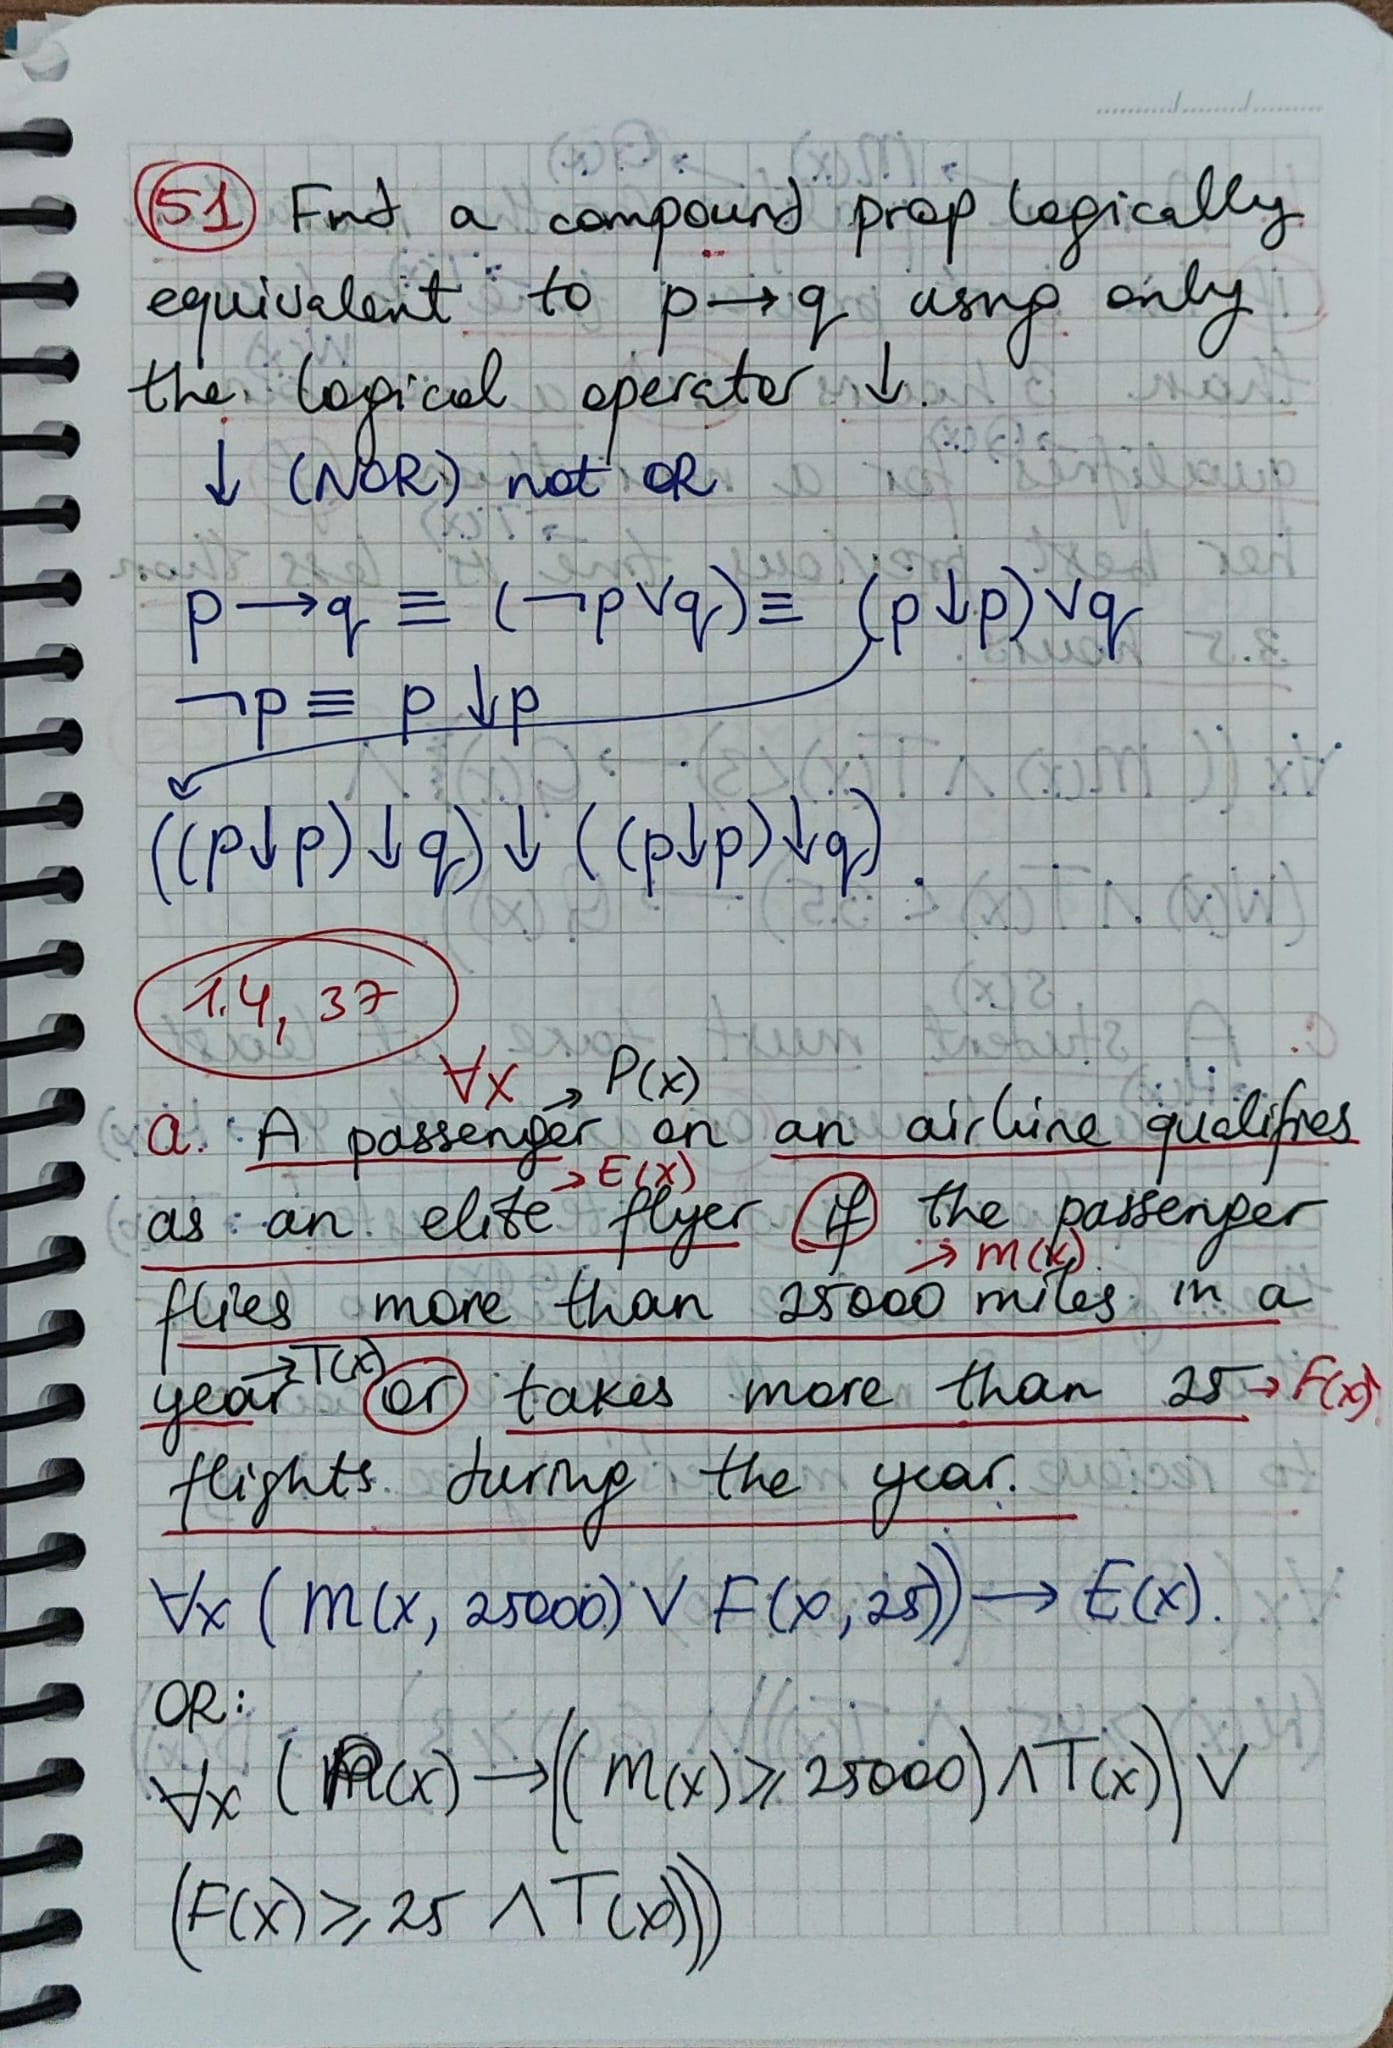 51 Fınd a compound prop logically
equivalent to p → q usıng only
the logical operator ↓.
↓ (NOR) not OR
p → q ≡ (¬p ∨ q) ≡ (p ↓ p) ∨ q
¬p ≡ p ↓ p
((p ↓ p) ↓ q) ↓ ((p ↓ p) ↓ q).
1.4, 37
∀x → P(x)
a. A passenger on an airline qualifıes
→ E(x)
as an elite flyer if the passenger
→ M(x)
flies more than 25000 miles in a
→ T(x)
year or takes more than 25 → F(x)
flights durıng the year.
∀x (M(x, 25000) ∨ F(x, 25)) → E(x).
OR:
∀x (P(x) → ((M(x) ⩾ 25000) ∧ T(x)) ∨
(F(x) ⩾ 25 ∧ T(x)))